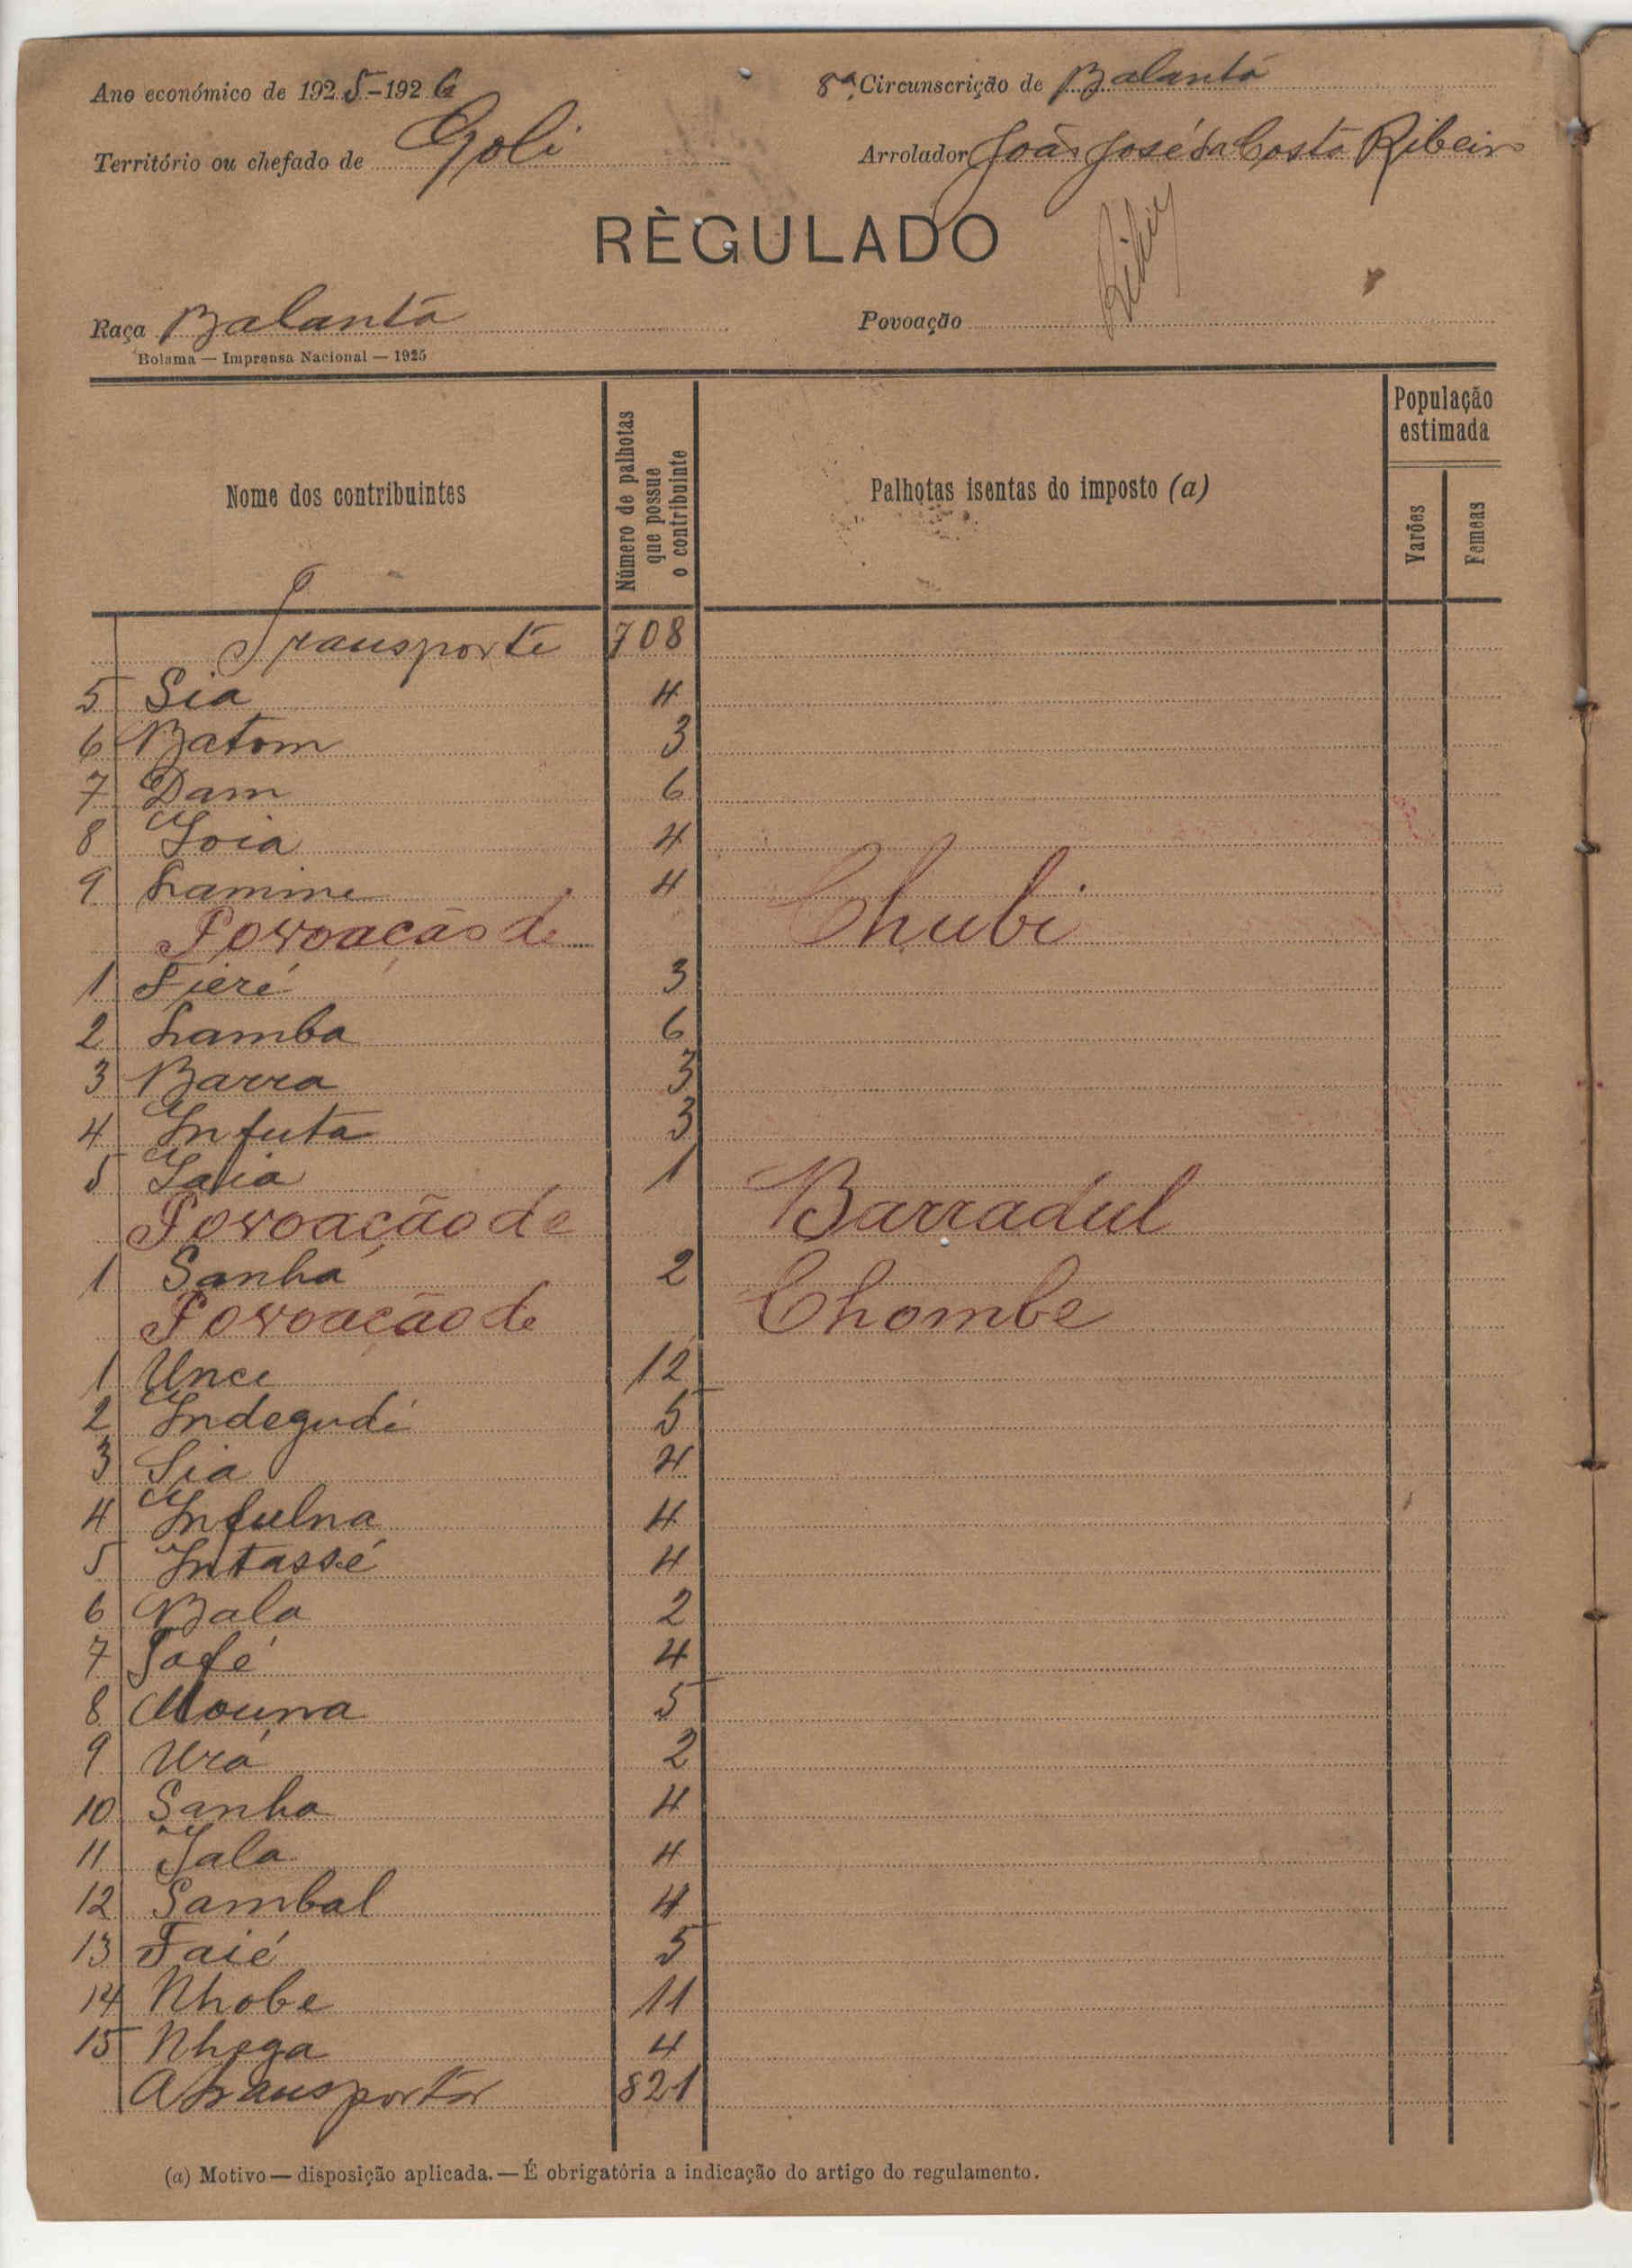 Ano económico de 1925-1926
8ª Circunscrição de Balantá
Território ou chefado de Goli
Arrolador João José da Costa Ribeiro
RÈGULADO
Raça Balantá
Povoação
Bolama — Imprensa Nacional — 1925
Nome dos contribuintes
Número de palhotas que possue o contribuinte
Palhotas isentas do imposto (a)
População estimada
Varões
Femeas
Transporte 708
5 Sia 4
6 Batom 3
7 Dam 6
8 Ioia 4
9 Lamine 4
Povoação de Chubi
1 Fieré 3
2 Lamba 6
3 Barra 3
4 Infuta 3
5 Iaia 1
Povoação de Barradul
1 Sanhá 2
Povoação de Chombe
1 Unce 12
2 Indegudi 5
3 Sia 4
4 Infulna 4
5 Intassé 4
6 Bala 2
7 Safé 4
8 Mouna 5
9 Urá 2
10 Sanha 4
11 Iala 4
12 Sambal 4
13 Faié 5
14 Nhobe 11
15 Nhaga 4
A transportar 821
(a) Motivo — disposição aplicada. — É obrigatória a indicação do artigo do regulamento.